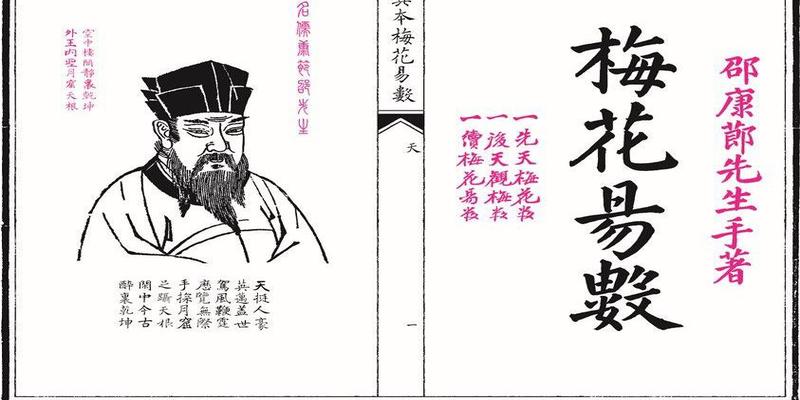 邵康節先生手著
梅花易數
一先天梅花数
一後天觀梅数
一續梅花易数
本梅花易數
天
一
名儒康節邵先生
空中樓閣靜裏乾坤
外王內聖月窟天根
天挺人豪
英邁蓋世
駕風鞭霆
歷覽無際
手探月窟
足躡天根
閒中今古
醉裏乾坤